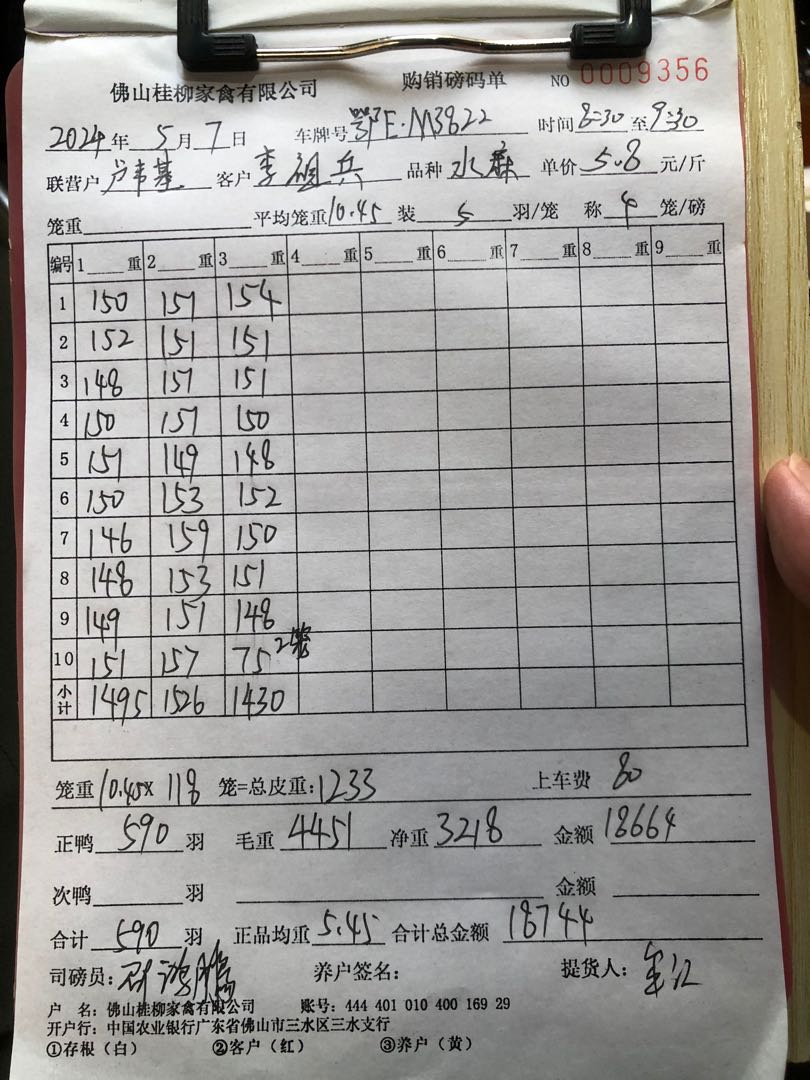 佛山桂柳家禽有限公司 购销磅码单 NO 0009356
2024年 5月 7日 车牌号 鄂E·M3822 时间 8:30 至 9:30
联营户 卢韦基 客户 李祖兵 品种 水麻 单价 5.8 元/斤
笼重 平均笼重 10.45 装 5 羽/笼 称 4 笼/磅
编号 1 重 2 重 3 重 4 重 5 重 6 重 7 重 8 重 9 重
1 150 151 154
2 152 151 151
3 148 151 151
4 150 151 150
5 151 149 148
6 150 153 152
7 146 159 150
8 148 153 151
9 149 151 148
10 151 157 75 2笼
小计 1495 1526 1430
笼重 10.45x 118 笼=总皮重: 1233 上车费 80
正鸭 590 羽 毛重 4451 净重 3218 金额 18664
次鸭 羽 金额
合计 590 羽 正品均重 5.45 合计总金额 18744
司磅员: 养户签名: 提货人:
户 名: 佛山桂柳家禽有限公司 账号: 444 401 010 400 169 29
开户行: 中国农业银行广东省佛山市三水区三水支行
①存根(白) ②客户(红) ③养户(黄)